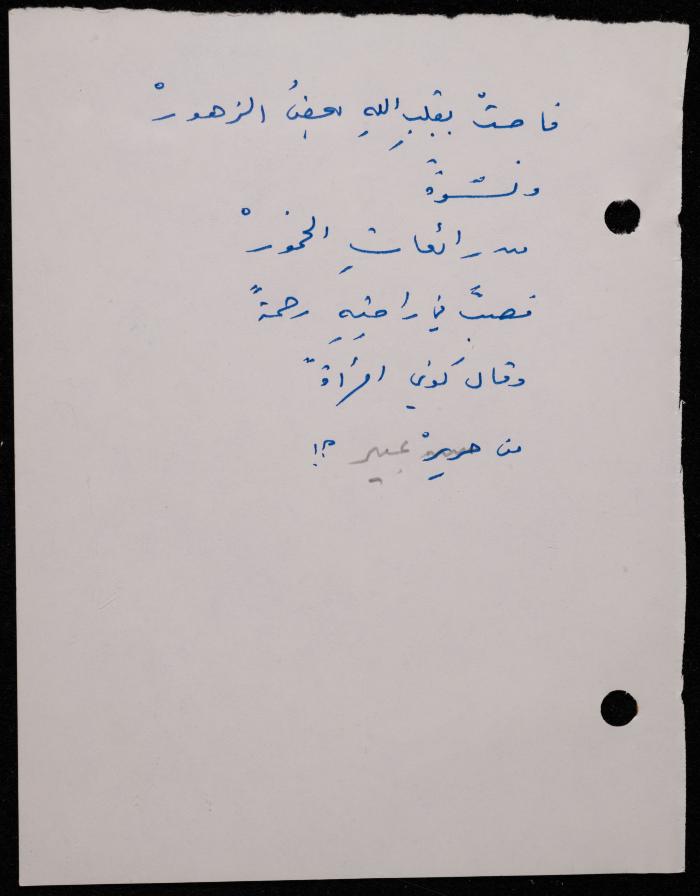 فاحتْ بقلبِ اللهِ بعضُ الزهورْ
ونشوةٌ
من رائعاتِ الخمورْ
فصبَّ في راحتِهِ رحمةً
وقال كوني امرأةً
من حريرْ عبير ؟!